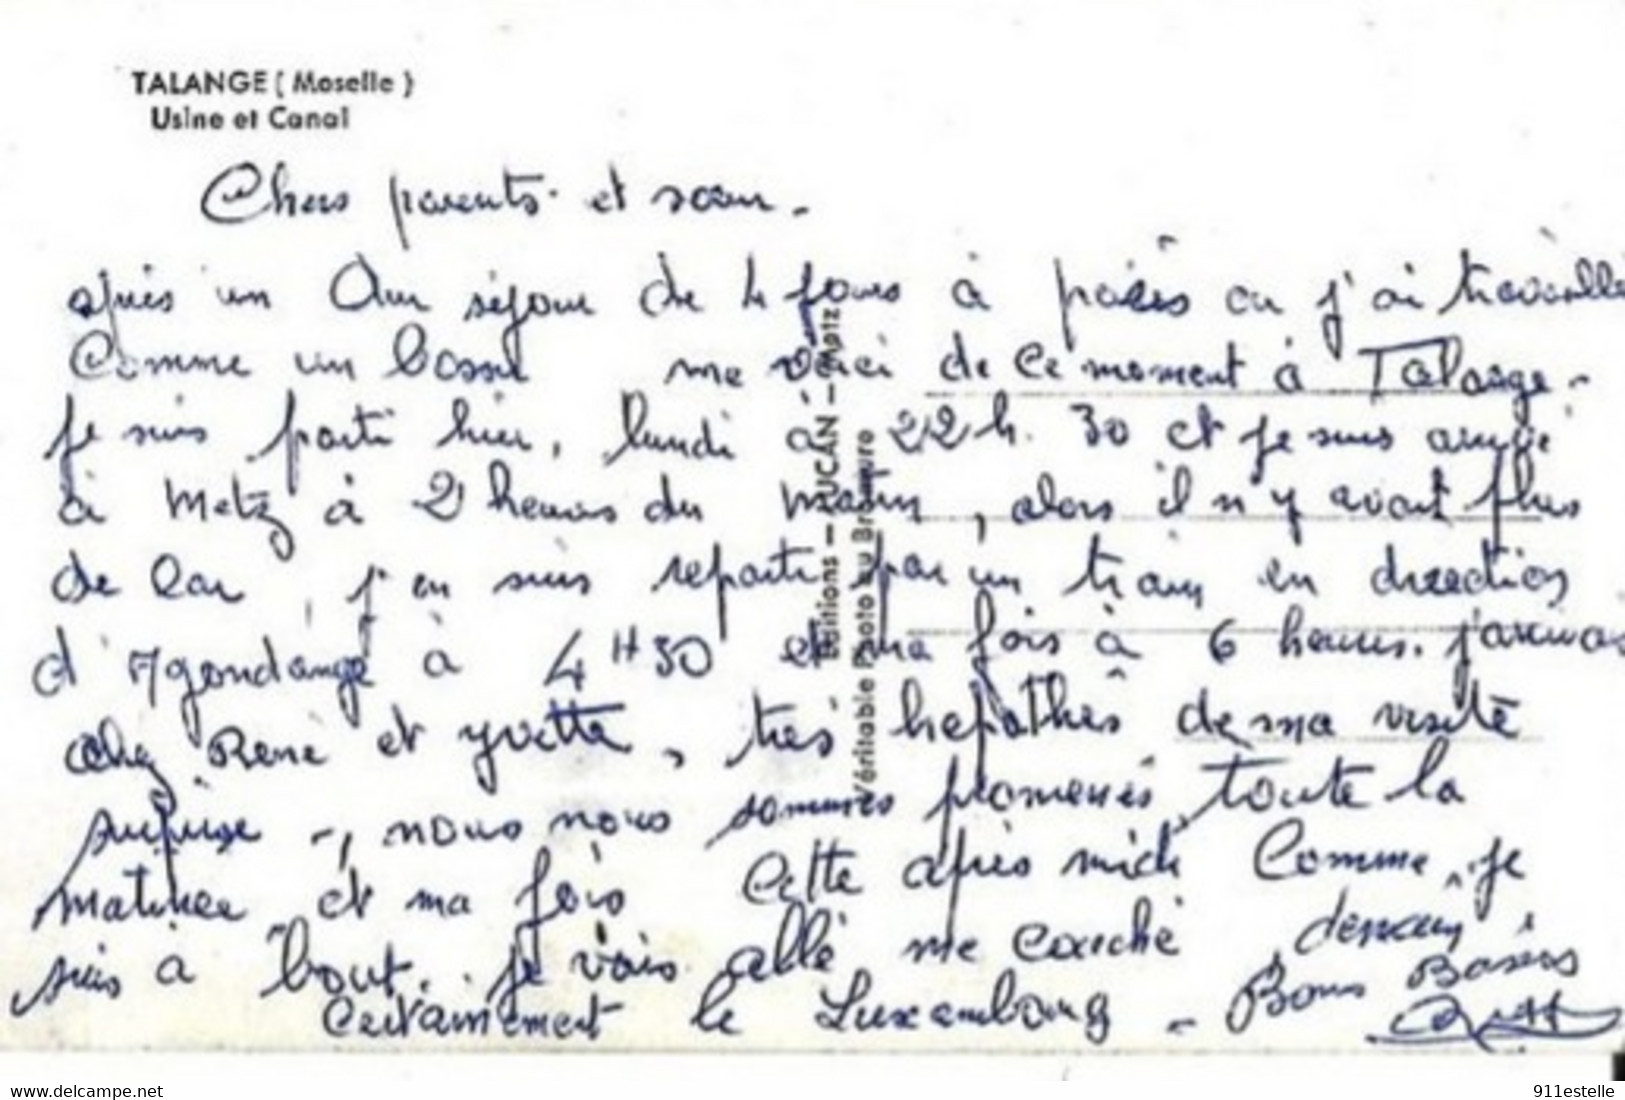 TALANGE ( Moselle )
Usine et Canal
Chers parents et sœur -
après un dur séjour de 4 jours à paris ou j'ai travaillé
Comme un bossu me voici de ce moment à Talange -
je suis parti hier, lundi à 22 h. 30 et je suis arrivé
à Metz à 2 heures du matin, alors il n y avait plus
de car, j'en suis reparti par un train en direction
d'Agondange à 4 H 30 et ma fois à 6 heures. j'arrivais
chez René et yvette, très hepathés de ma visite
surprise -, nous nous sommes promenés toute la
matinée et ma fois Cette après midi Comme je
suis à bout. je vais allé me couché demain
certainement le Luxembourg - Bons Baisers
Editions - - Metz
Véritable Photo au Bromure
www.delcampe.net
911estelle